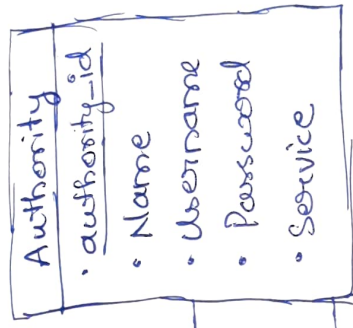 Authority
• authority_id
• Name
• Username
• Password
• Service